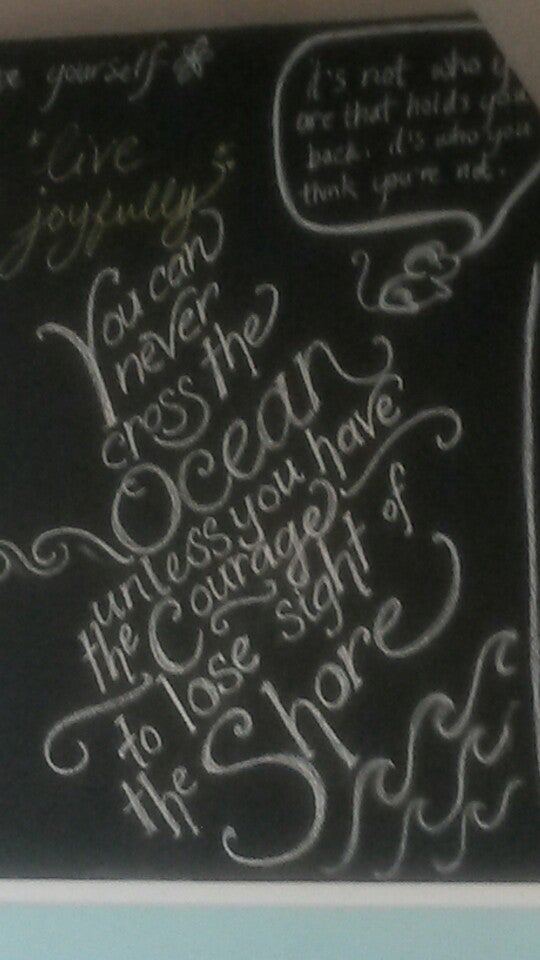 yourself
live
joyfully
it's not who
are that holds you
back. it's who you
think you're not.
You can
never
cross the
Ocean
unless you have
the Courage
to lose sight of
the Shore